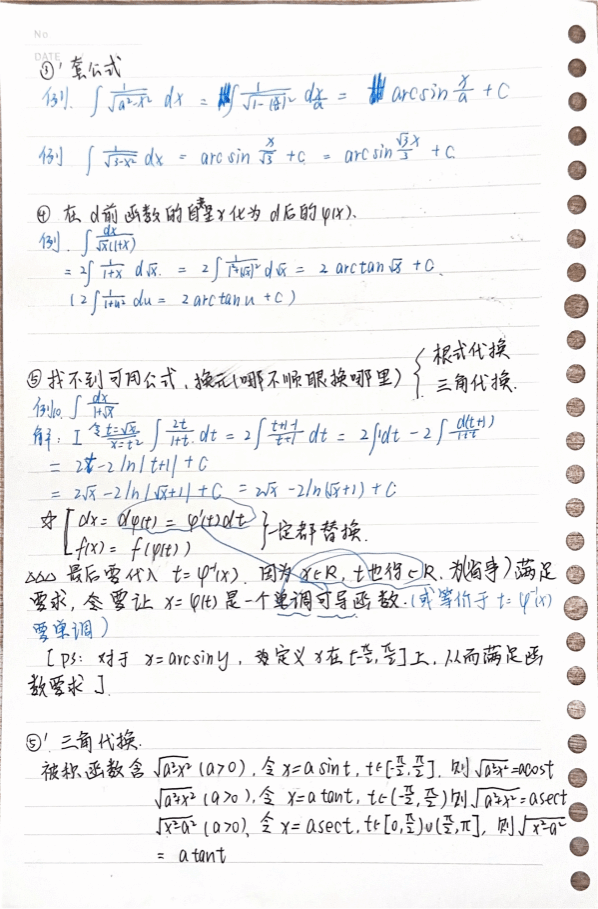 No
DATE
③' 套公式
例. ∫ 1/√(a²-x²) dx = ∫ 1/√(1-(x/a)²) d x/a = arcsin x/a + C
例 ∫ 1/√(3-x²) dx = arcsin x/√3 + C = arcsin √3x/3 + C
④ 在d前函数的自变量x化为d后的φ(x).
例. ∫ dx/√x(1+x)
= 2∫ 1/(1+x) d√x. = 2∫ 1/(1²+(√x)²) d√x = 2 arctan√x + C.
(2∫ 1/(1+u²) du = 2arctan u + C)
⑤ 找不到可用公式,换元(哪不顺眼换哪里) { 根式代换
三角代换.
例10. ∫ dx/(1+√x)
解: I 令t=√x x=t² ∫ 2t/(1+t) dt = 2∫ (t+1-1)/(t+1) dt = 2∫1dt - 2∫ d(t+1)/(1+t)
= 2t-2ln|t+1| + C
= 2√x -2ln|√x+1| + C = 2√x -2ln(√x+1) + C
☆ [ dx = dφ(t) = φ'(t)dt } 一定都替换.
f(x) = f(φ(t))
△△△ 最后要代入 t=φ⁻¹(x). 因为x∈R, t也得∈R. 为(省事)满足
要求,会要让 x=φ(t) 是一个单调可导函数.(或等价于t=φ⁻¹(x)
要单调)
[PS: 对于 x=arcsiny, 定义x在[-π/2, π/2]上,从而满足函
数要求].
⑤' 三角代换.
被积函数含 √(a²-x²) (a>0), 令 x=a sint, t∈[-π/2, π/2]. 则√(a²-x²)=acost
√(a²+x²) (a>0), 令 x=a tant, t∈(-π/2, π/2) 则√(a²+x²)=asect
√(x²-a²) (a>0), 令 x=asect, t∈[0, π/2)∪(π/2, π], 则√(x²-a²)
= atant